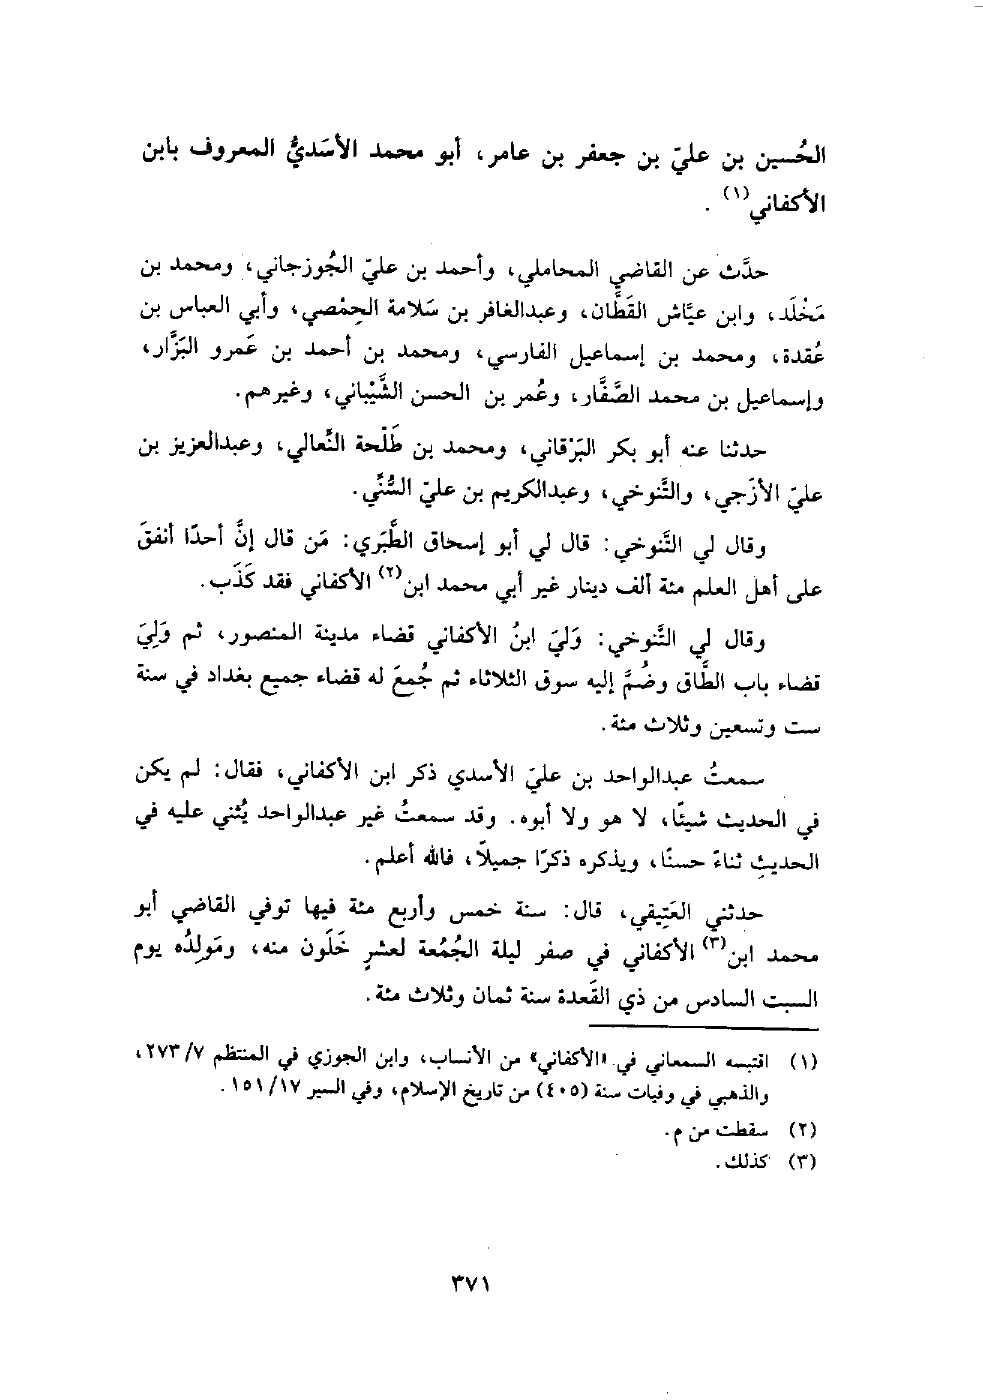 الحُسين بن عليّ بن جعفر بن عامر، أبو محمد الأسَديُّ المعروف بابن
الأكفاني(١) .
حدَّث عن القاضي المحاملي، وأحمد بن عليّ الجُوزجاني، ومحمد بن
مَخْلَد، وابن عيَّاش القَطَّان، وعبدالغافر بن سَلامة الحِمْصي، وأبي العباس بن
عُقدة، ومحمد بن إسماعيل الفارسي، ومحمد بن أحمد بن عَمرو البَزَّار،
وإسماعيل بن محمد الصَّفَّار، وعُمر بن الحسن الشَّيْباني، وغيرهم.
حدثنا عنه أبو بكر البَرْقاني، ومحمد بن طَلْحة النِّعالي، وعبدالعزيز بن
عليّ الأزَجي، والتَّنوخي، وعبدالكريم بن عليّ السُّنِّي.
وقال لي التَّنوخي: قال لي أبو إسحاق الطَّبَري: مَن قال إنَّ أحدًا أنفقَ
على أهل العلم مئة ألف دينار غير أبي محمد ابن(٢) الأكفاني فقد كَذَب.
وقال لي التَّنوخي: وَليَ ابنُ الأكفاني قضاء مدينة المنصور، ثم وَلِيَ
قضاء باب الطَّاق وضُمَّ إليه سوق الثلاثاء ثم جُمعَ له قضاء جميع بغداد في سنة
ست وتسعين وثلاث مئة.
سمعتُ عبدالواحد بن عليّ الأسدي ذكر ابن الأكفاني، فقال: لم يكن
في الحديث شيئًا، لا هو ولا أبوه. وقد سمعتُ غير عبدالواحد يُثني عليه في
الحديثِ ثناءً حسنًا، ويذكره ذكرًا جميلًا، فالله أعلم.
حدثني العَتِيقي، قال: سنة خمس وأربع مئة فيها توفي القاضي أبو
محمد ابن(٣) الأكفاني في صفر ليلة الجُمُعة لعشرٍ خَلَون منه، ومَولِدُه يوم
السبت السادس من ذي القَعدة سنة ثمان وثلاث مئة.
(١) اقتبسه السمعاني في «الأكفاني» من الأنساب، وابن الجوزي في المنتظم ٢٧٣/٧،
والذهبي في وفيات سنة (٤٠٥) من تاريخ الإسلام، وفي السير ١٥١/١٧.
(٢) سقطت من م.
(٣) كذلك.
٣٧١